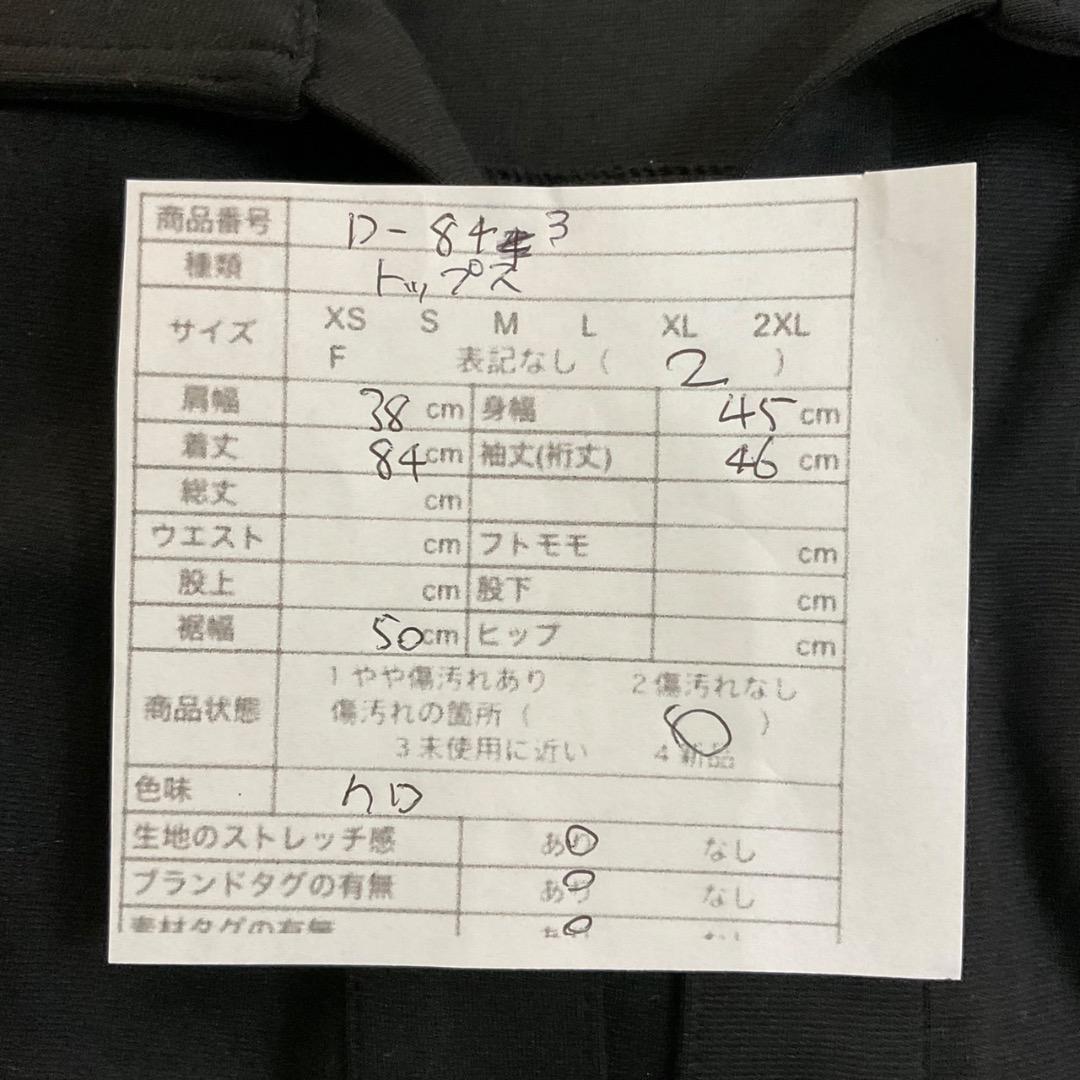 商品番号 D-843
種類 トップス
サイズ XS S M L XL 2XL
F 表記なし( 2 )
肩幅 38 cm 身幅 45 cm
着丈 84 cm 袖丈(裄丈) 46 cm
総丈 cm
ウエスト cm フトモモ cm
股上 cm 股下 cm
裾幅 50 cm ヒップ cm
商品状態 1 やや傷汚れあり 2 傷汚れなし
傷汚れの箇所( )
3 未使用に近い 4 新品
色味
生地のストレッチ感 あり なし
ブランドタグの有無 あり なし
素材タグの有無 あり なし